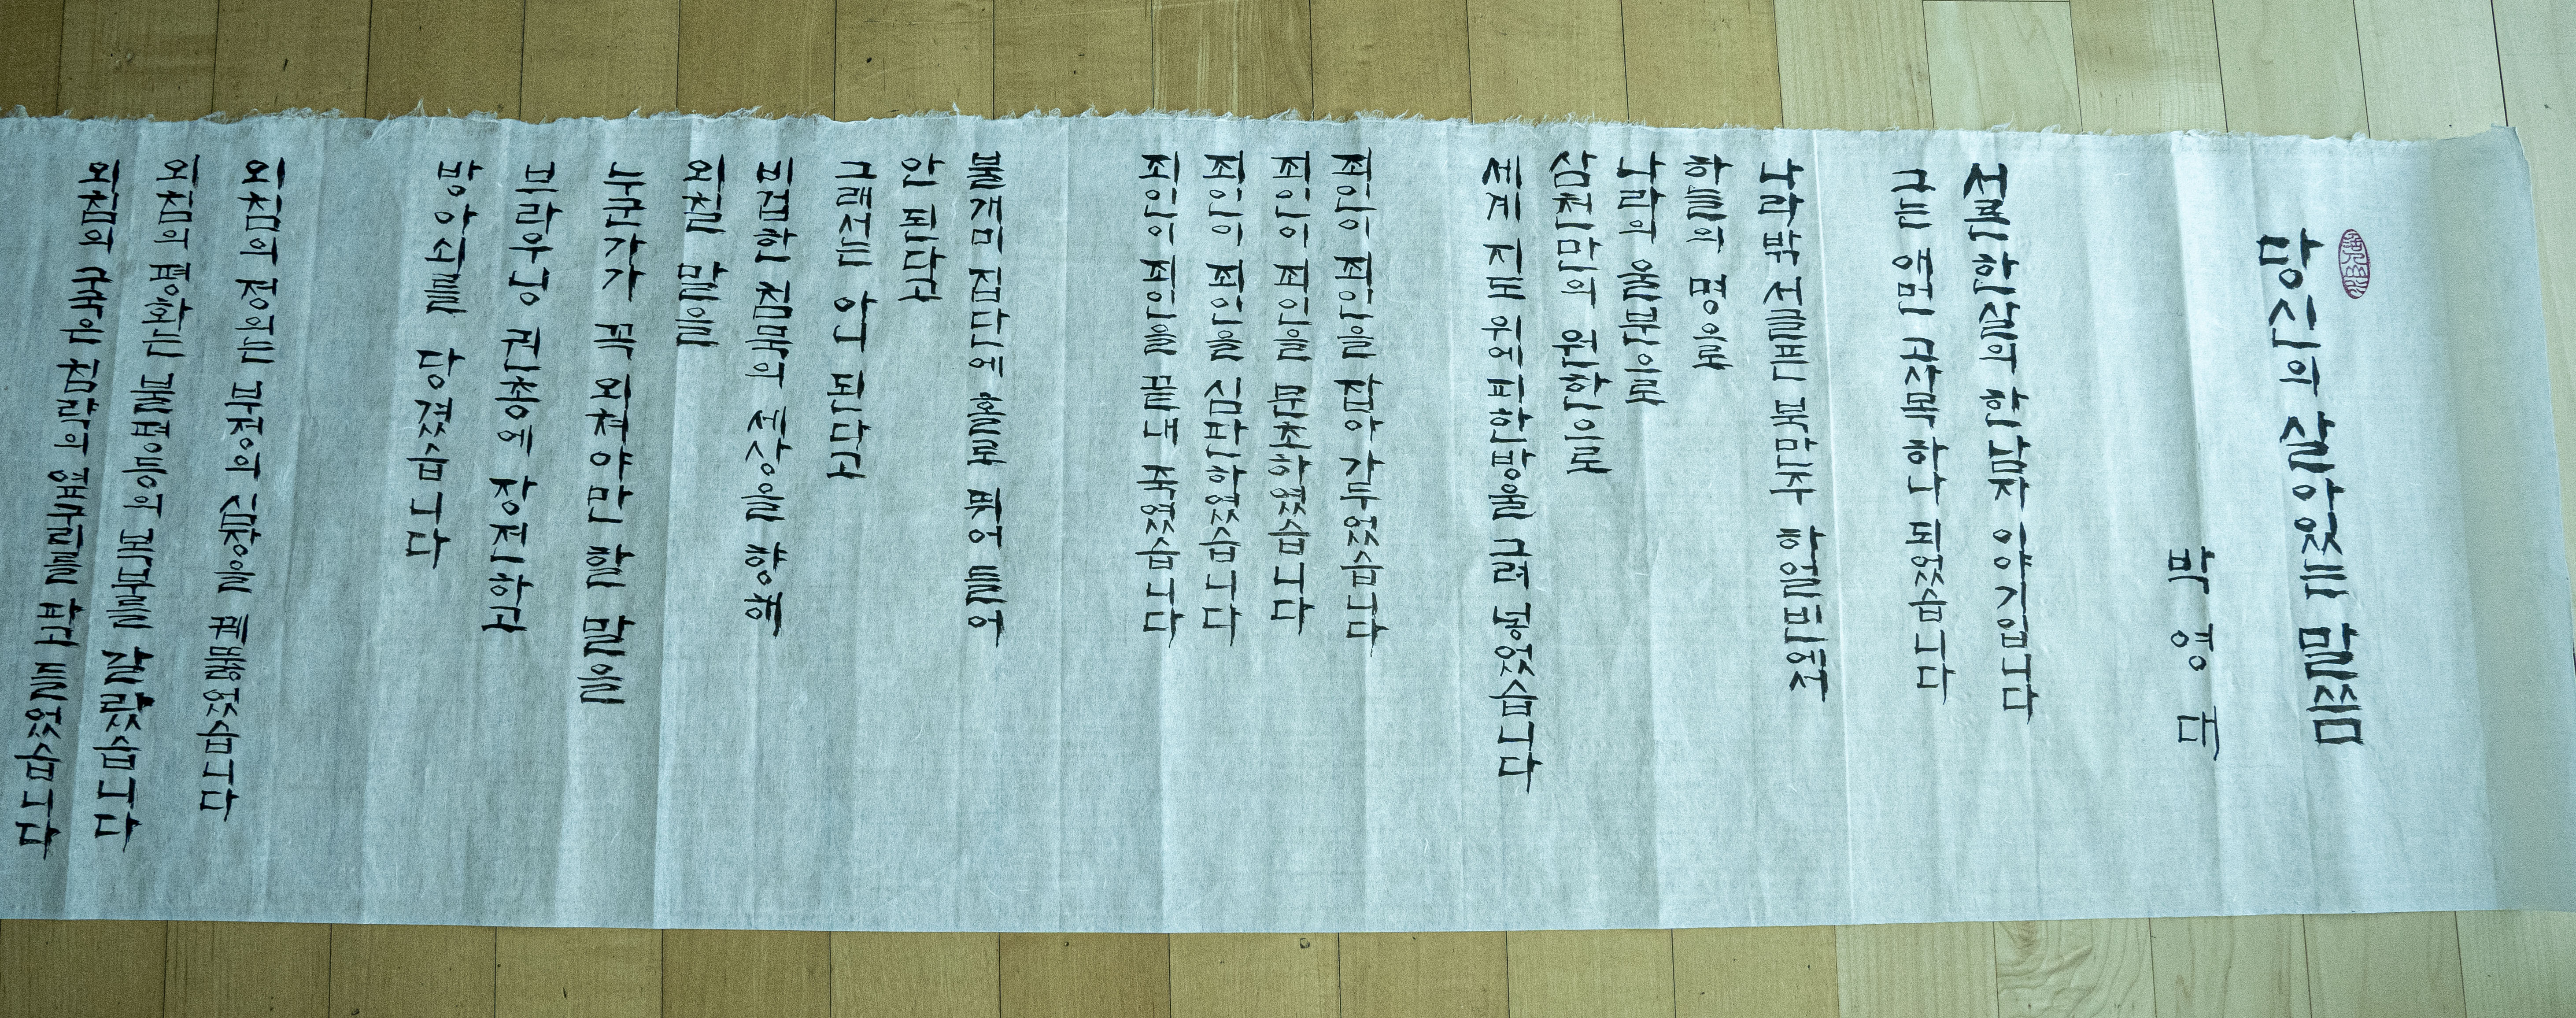 당신의 살아있는 말씀
박 영 대
서른 한 살의 한 남자 이야기입니다
그는 여먼 고사목 하나 되었습니다
나라 밖 서글픈 북만주 하얼빈에서
하늘의 명으로
나라의 울분으로
삼천만의 원한으로
세계 지도 위에 피 한방울 그려 넣었습니다
죄인이 죄인을 잡아 가두었습니다
죄인이 죄인을 문초하였습니다
죄인이 죄인을 심판하였습니다
죄인이 죄인을 끝내 죽였습니다
불개미 집단에 홀로 뛰어 들어
안 된다고
그래서는 아니 된다고
비겁한 침묵의 세상을 향해
외칠 말을
누군가가 꼭 외쳐야만 할 말을
브라우닝 권총에 장전하고
방아쇠를 당겼습니다
외침의 정의는 부정의 심장을 꿰뚫었습니다
외침의 평화는 불평등의 폐부를 갈랐습니다
외침의 구국은 침략의 옆구리를 박고 들었습니다